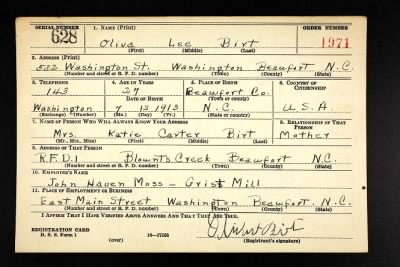 SERIAL NUMBER 1. NAME (Print) ORDER NUMBER
628 Oliva Lee Birt 1971
(First) (Middle) (Last)
2. ADDRESS (Print)
532 Washington St. Washington Beaufort N.C.
(Number and street or R. F. D. number) (Town) (County) (State)
3. TELEPHONE 4. AGE IN YEARS 5. PLACE OF BIRTH 6. COUNTRY OF CITIZENSHIP
143 27 Beaufort Co.
DATE OF BIRTH (Town or county)
Washington 7 13 1913 N.C. U.S.A.
(Exchange) (Number) (Mo.) (Day) (Yr.) (State or country)
7. NAME OF PERSON WHO WILL ALWAYS KNOW YOUR ADDRESS 8. RELATIONSHIP OF THAT PERSON
Mrs. Katie Carter Birt Mother
(Mr., Mrs., Miss) (First) (Middle) (Last)
9. ADDRESS OF THAT PERSON
R.F.D.1 Blounts Creek Beaufort N.C.
(Number and street or R. F. D. number) (Town) (County) (State)
10. EMPLOYER'S NAME
John Haven Moss - Grist Mill
11. PLACE OF EMPLOYMENT OR BUSINESS
East Main Street Washington Beaufort. N.C.
(Number and street or R. F. D. number) (Town) (County) (State)
I AFFIRM THAT I HAVE VERIFIED ABOVE ANSWERS AND THAT THEY ARE TRUE.
REGISTRATION CARD
D. S. S. Form 1 16-17105 (Registrant's signature)